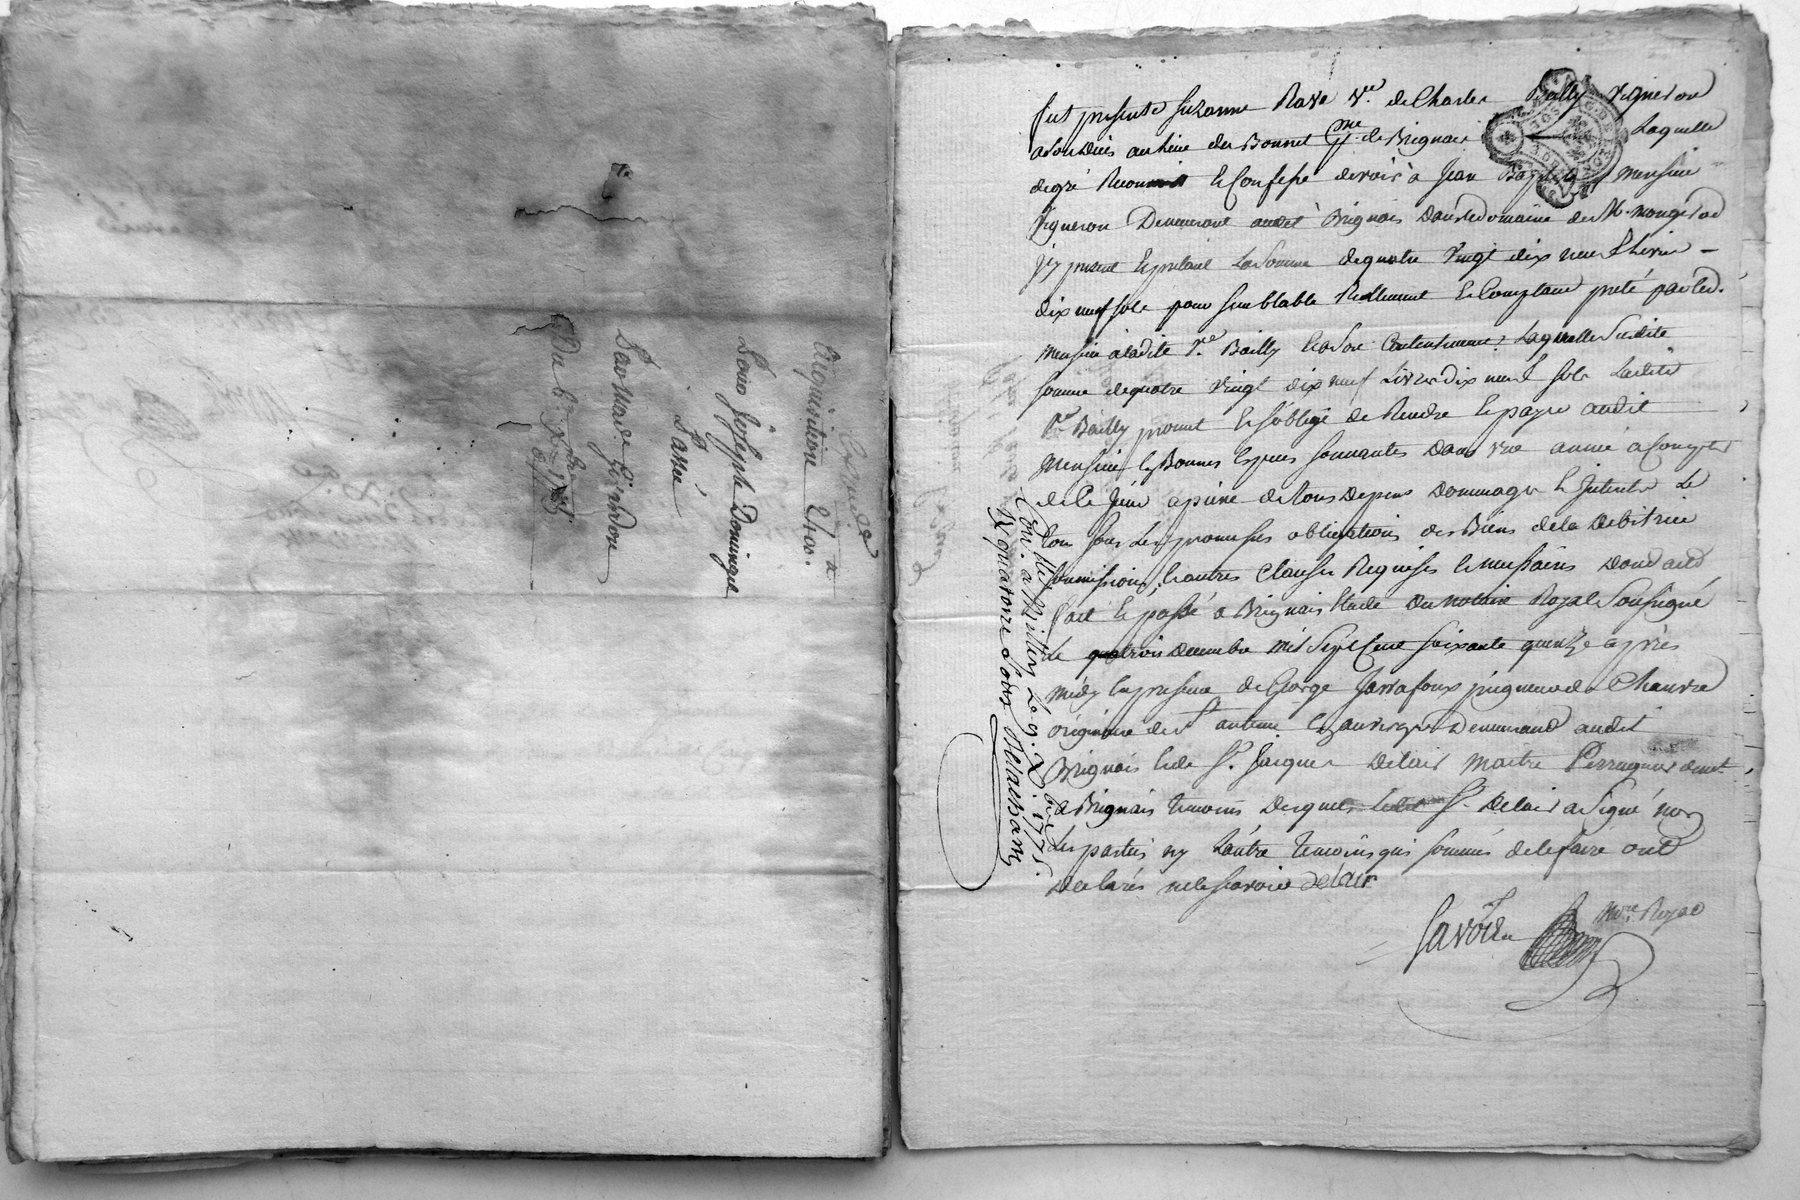 acquisition 2400.
Louis Joseph Dominque
Passée
Par Marie Giraudon
Du 6
fut presente Suzanne Rave v.e de Charles Bailly Vigneron
a son deces au lieu des Bonnet p.sse de Brignais Laquelle
de gré Reconnoit et Confesse devoir à Jean Baptiste Mersier
Vigneron Demeurant audit Brignais dans le domaine de M. Mongirod
jcy present et aceptant La Somme de quatre vingt dix neuf Livres
dix neuf sols pour semblable Réellement et Comptant preté par led.
Mersier à ladite v.e Bailly et a son Contentement, Laquelle Susdite
somme de quatre vingt dix neuf Livres dix neuf sols Ladite
v.e Bailly promet et s'oblige de Rendre et payer audit
Mersier en Bonnes Especes sonnantes dans une année a Compter
de Ce Jour a peine de tous depens dommages et Interets Le
tout sous les promesses obligations des Biens de la debitrice
soumissions et autres Clauses Requises et necessaires dont acte
fait et passé a Brignais Etude du notaire Royal Soussigné
le trois decembre mil Sept Cent soixante quinze après
midy en presence de George Jarrafoux peigneur de Chanvre
originaire de S.t antene en auvergne Demeurant audit
Brignais et de S.r Jacques Delair maitre Perruquier demt.
a Brignais temoins desquels S.r Delair a signé non
les parties ny L'autre temoin qui sommés de le faire ont
declarés ne le scavoir Delair
Savoie
N.re Royal
Con.llé a Millery Le 9. X.bre 1775.
Signatoire Sols Delachan